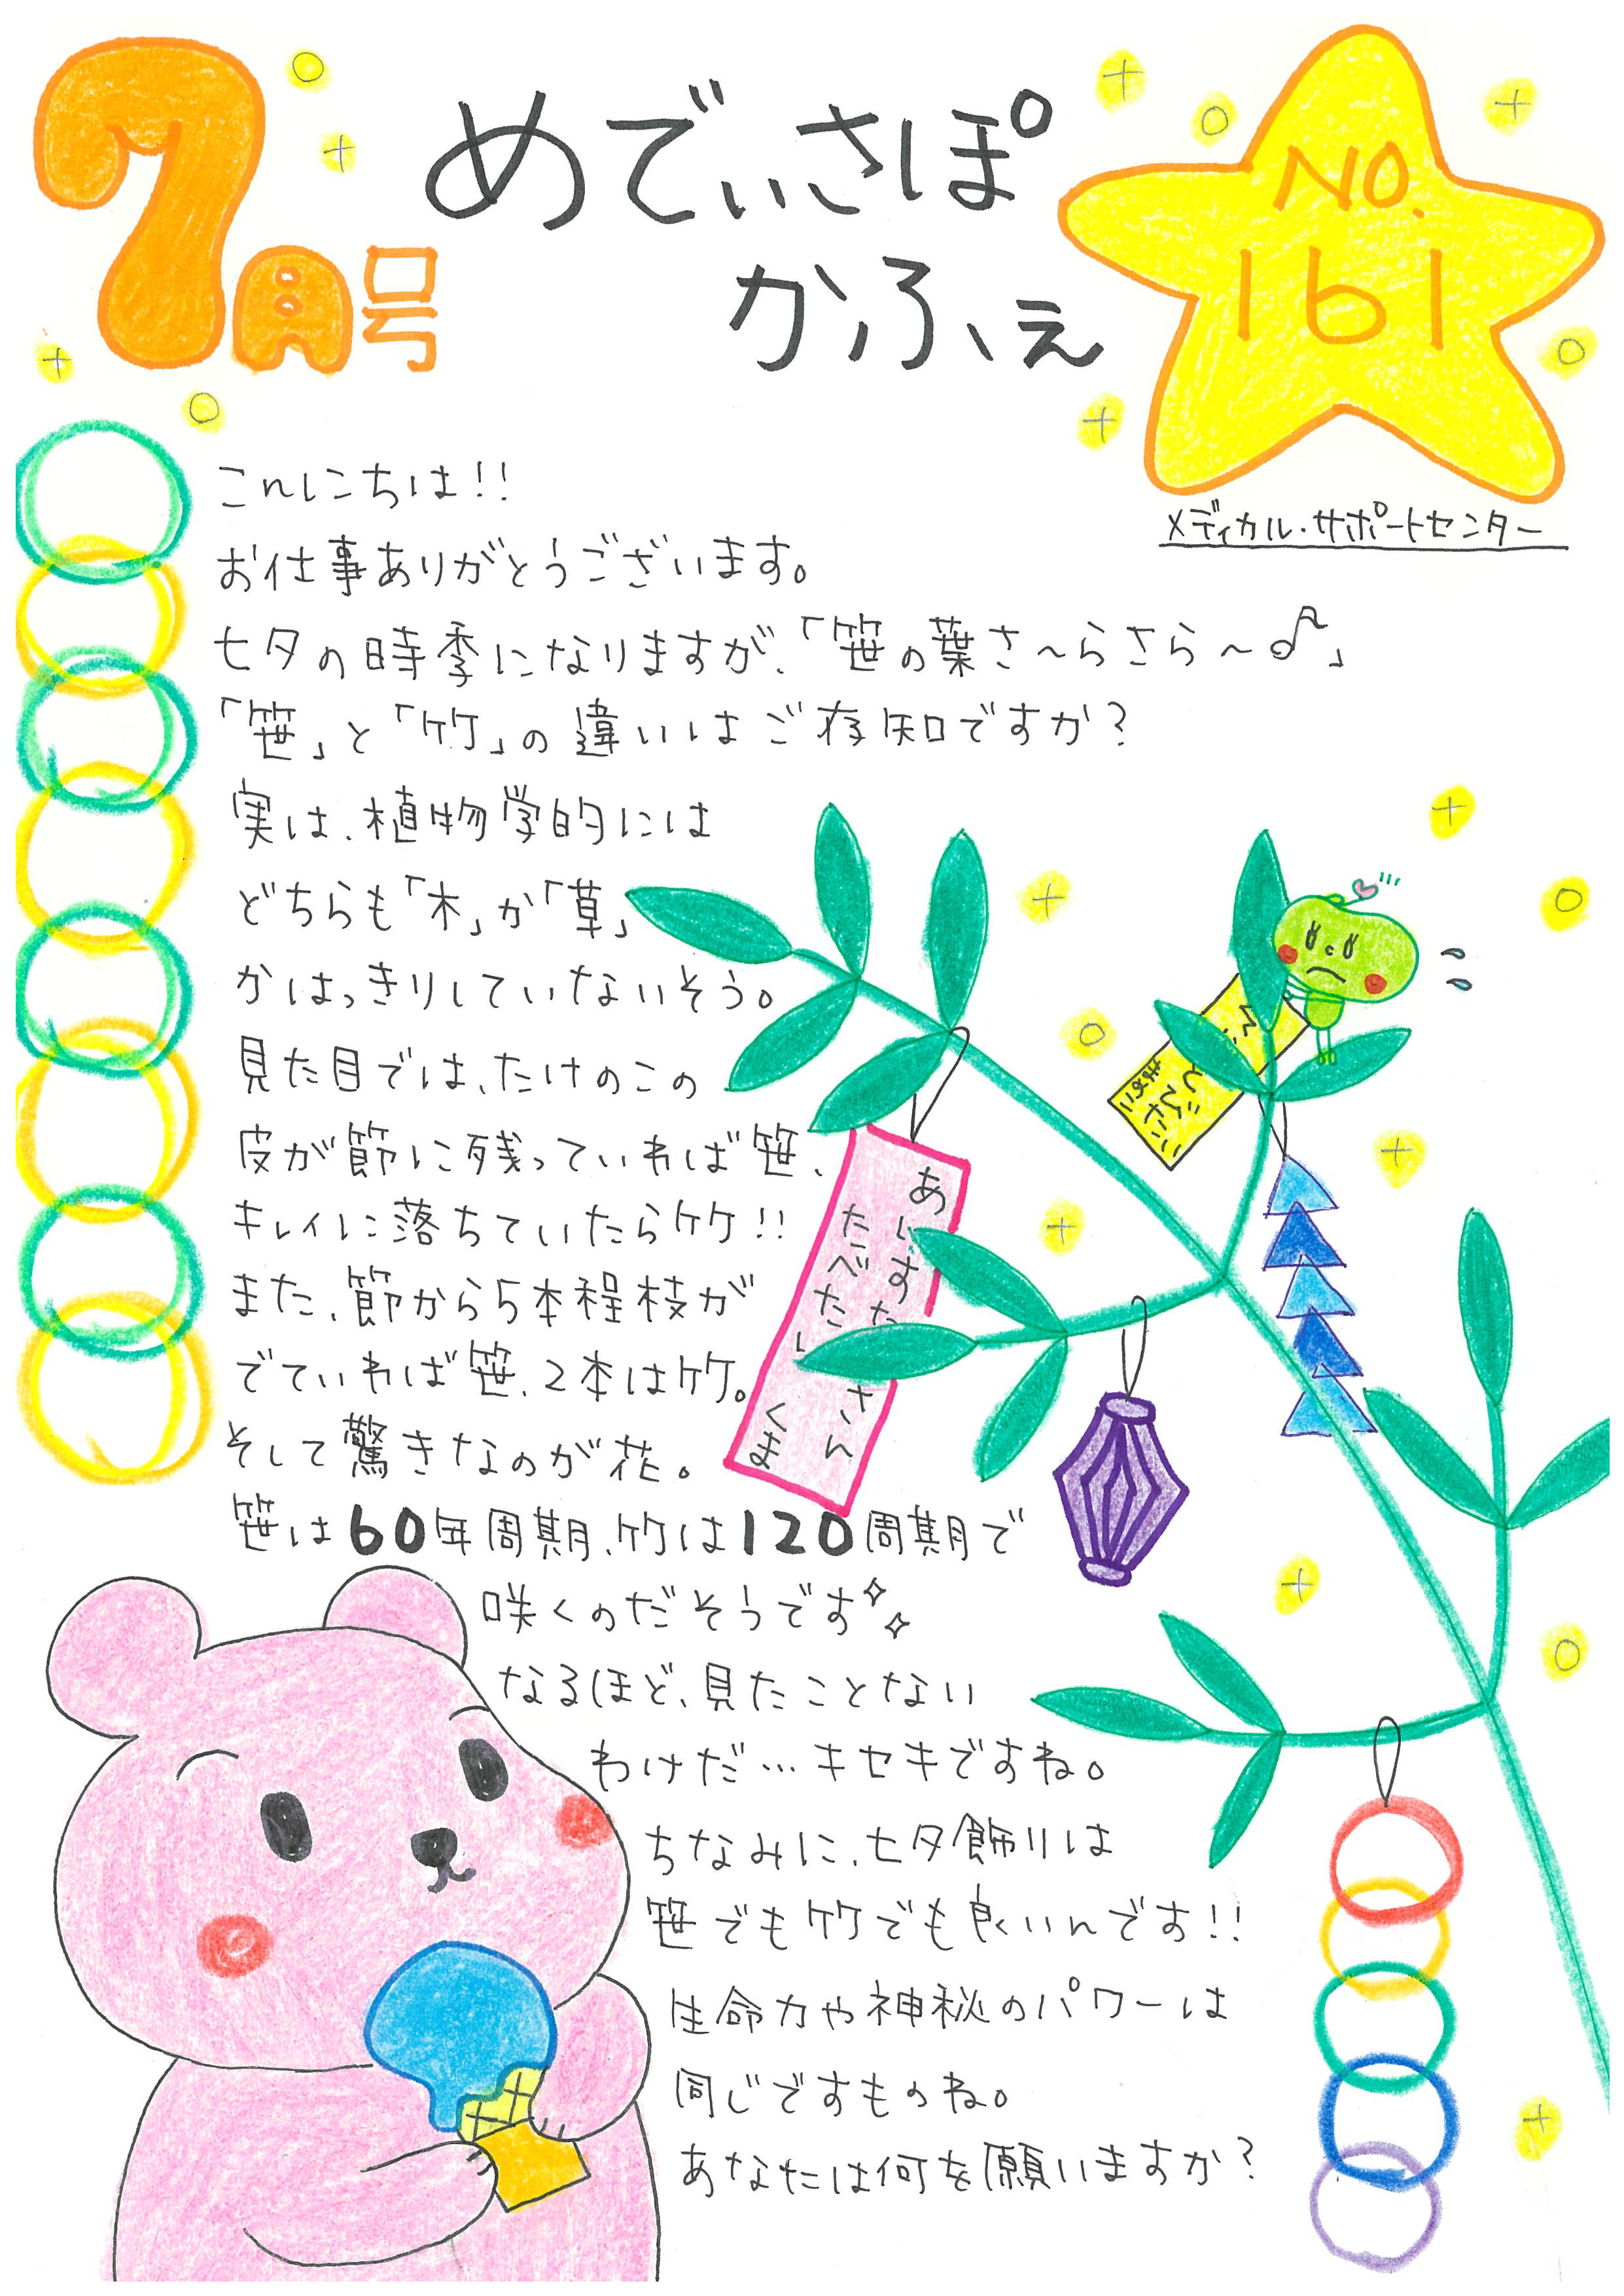 7月号
めでぃさぽ
かふぇ
NO.
161
メディカル・サポートセンター
こんにちは!!
お仕事ありがとうございます。
七夕の時季になりますが、「笹の葉さ~らさら~♪」
「笹」と「竹」の違いはご存知ですか?
実は、植物学的には
どちらも「木」か「草」
かはっきりしていないそう。
見た目では、たけのこの
皮が節に残っていれば笹、
キレイに落ちていたら竹!!
また、節から5本程枝が
でていれば笹、2本は竹。
そして驚きなのが花。
笹は60年周期、竹は120周期で
咲くのだそうです
なるほど、見たことない
わけだ…キセキですね。
ちなみに、七夕飾りは
笹でも竹でも良いんです!!
生命力や神秘のパワーは
同じですものね。
あなたは何を願いますか?
あいすたさん
たべたい
くま